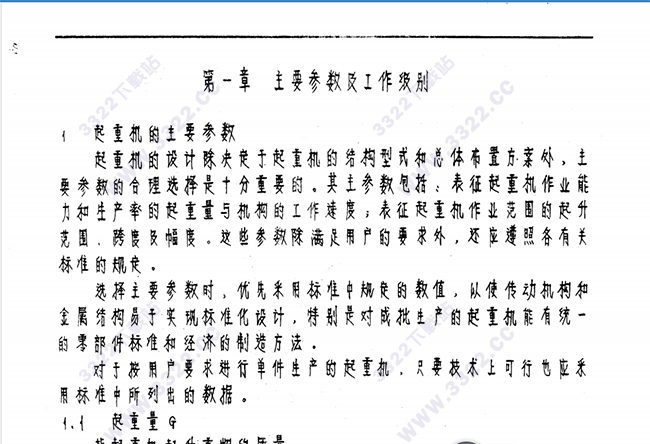 第一章 主要参数及工作级别
1 起重机的主要参数
起重机的设计除决定于起重机的结构型式和总体布置方案外，主
要参数的合理选择是十分重要的。其主参数包括：表征起重机作业能
力和生产率的起重量与机构的工作速度；表征起重机作业范围的起升
范围、跨度及幅度。这些参数除满足用户的要求外，还应遵照各有关
标准的规定。
选择主要参数时，优先采用标准中规定的数值，以使传动机构和
金属结构易于实现标准化设计，特别是对成批生产的起重机能有统一
的零部件标准和经济的制造方法。
对于按用户要求进行单件生产的起重机，只要技术上可行也应采
用标准中所列出的数据。
1.1 起重量G
3322下载站
www.3322.CC
3322下载站
www.3322.CC
3322下载站
www.3322.CC
3322下载站
www.3322.CC